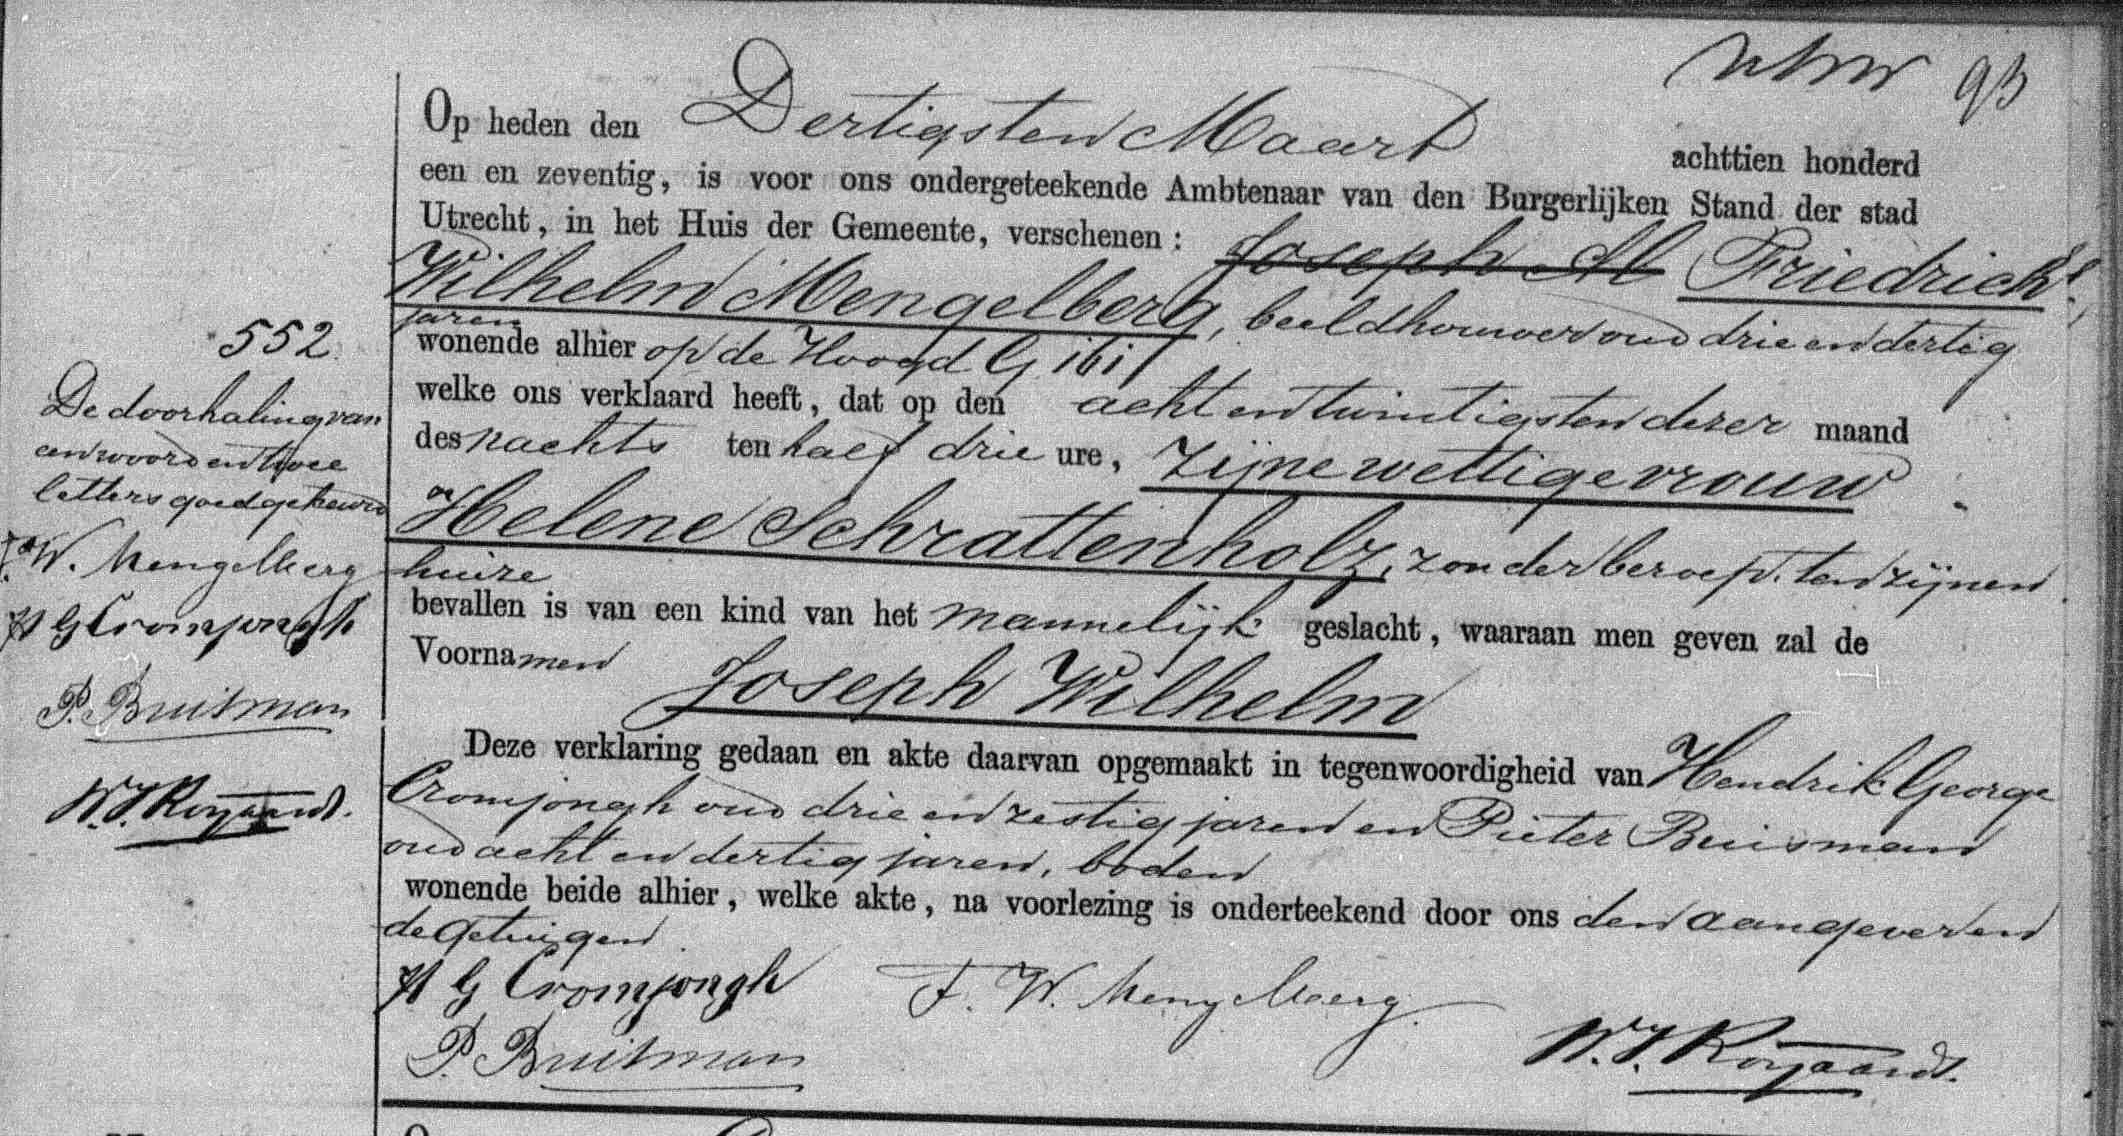 93
Op heden den Dertigsten Maart achttien honderd
een en zeventig, is voor ons ondergeteekende Ambtenaar van den Burgerlijken Stand der stad
Utrecht, in het Huis der Gemeente, verschenen: Joseph M Friedrich
Wilhelm Mengelberg, beeldhouwer oud drie en dertig
jaren
wonende alhier op de Hoogd G 161
welke ons verklaard heeft, dat op den acht en twintigsten dezer maand
des nachts ten half drie ure, zijne wettige vrouw
Helene Schrattenholz, zonder beroep, ten zijnen
huize
bevallen is van een kind van het mannelijk geslacht, waaraan men geven zal de
Voornamen Joseph Wilhelm
Deze verklaring gedaan en akte daarvan opgemaakt in tegenwoordigheid van Hendrik George
Cromjongh oud drie en zestig jaren en Pieter Buisman
oud acht en dertig jaren, boden
wonende beide alhier, welke akte, na voorlezing is onderteekend door ons den aangever en
de getuigen
H G Cromjongh F. W. Mengelberg
P. Buisman W. J. Royaards.
552
De doorhaling van
een woord en twee
letters goedgekeurd
F. W. Mengelberg
H G Cromjongh
P. Buisman
W. J. Royaards.